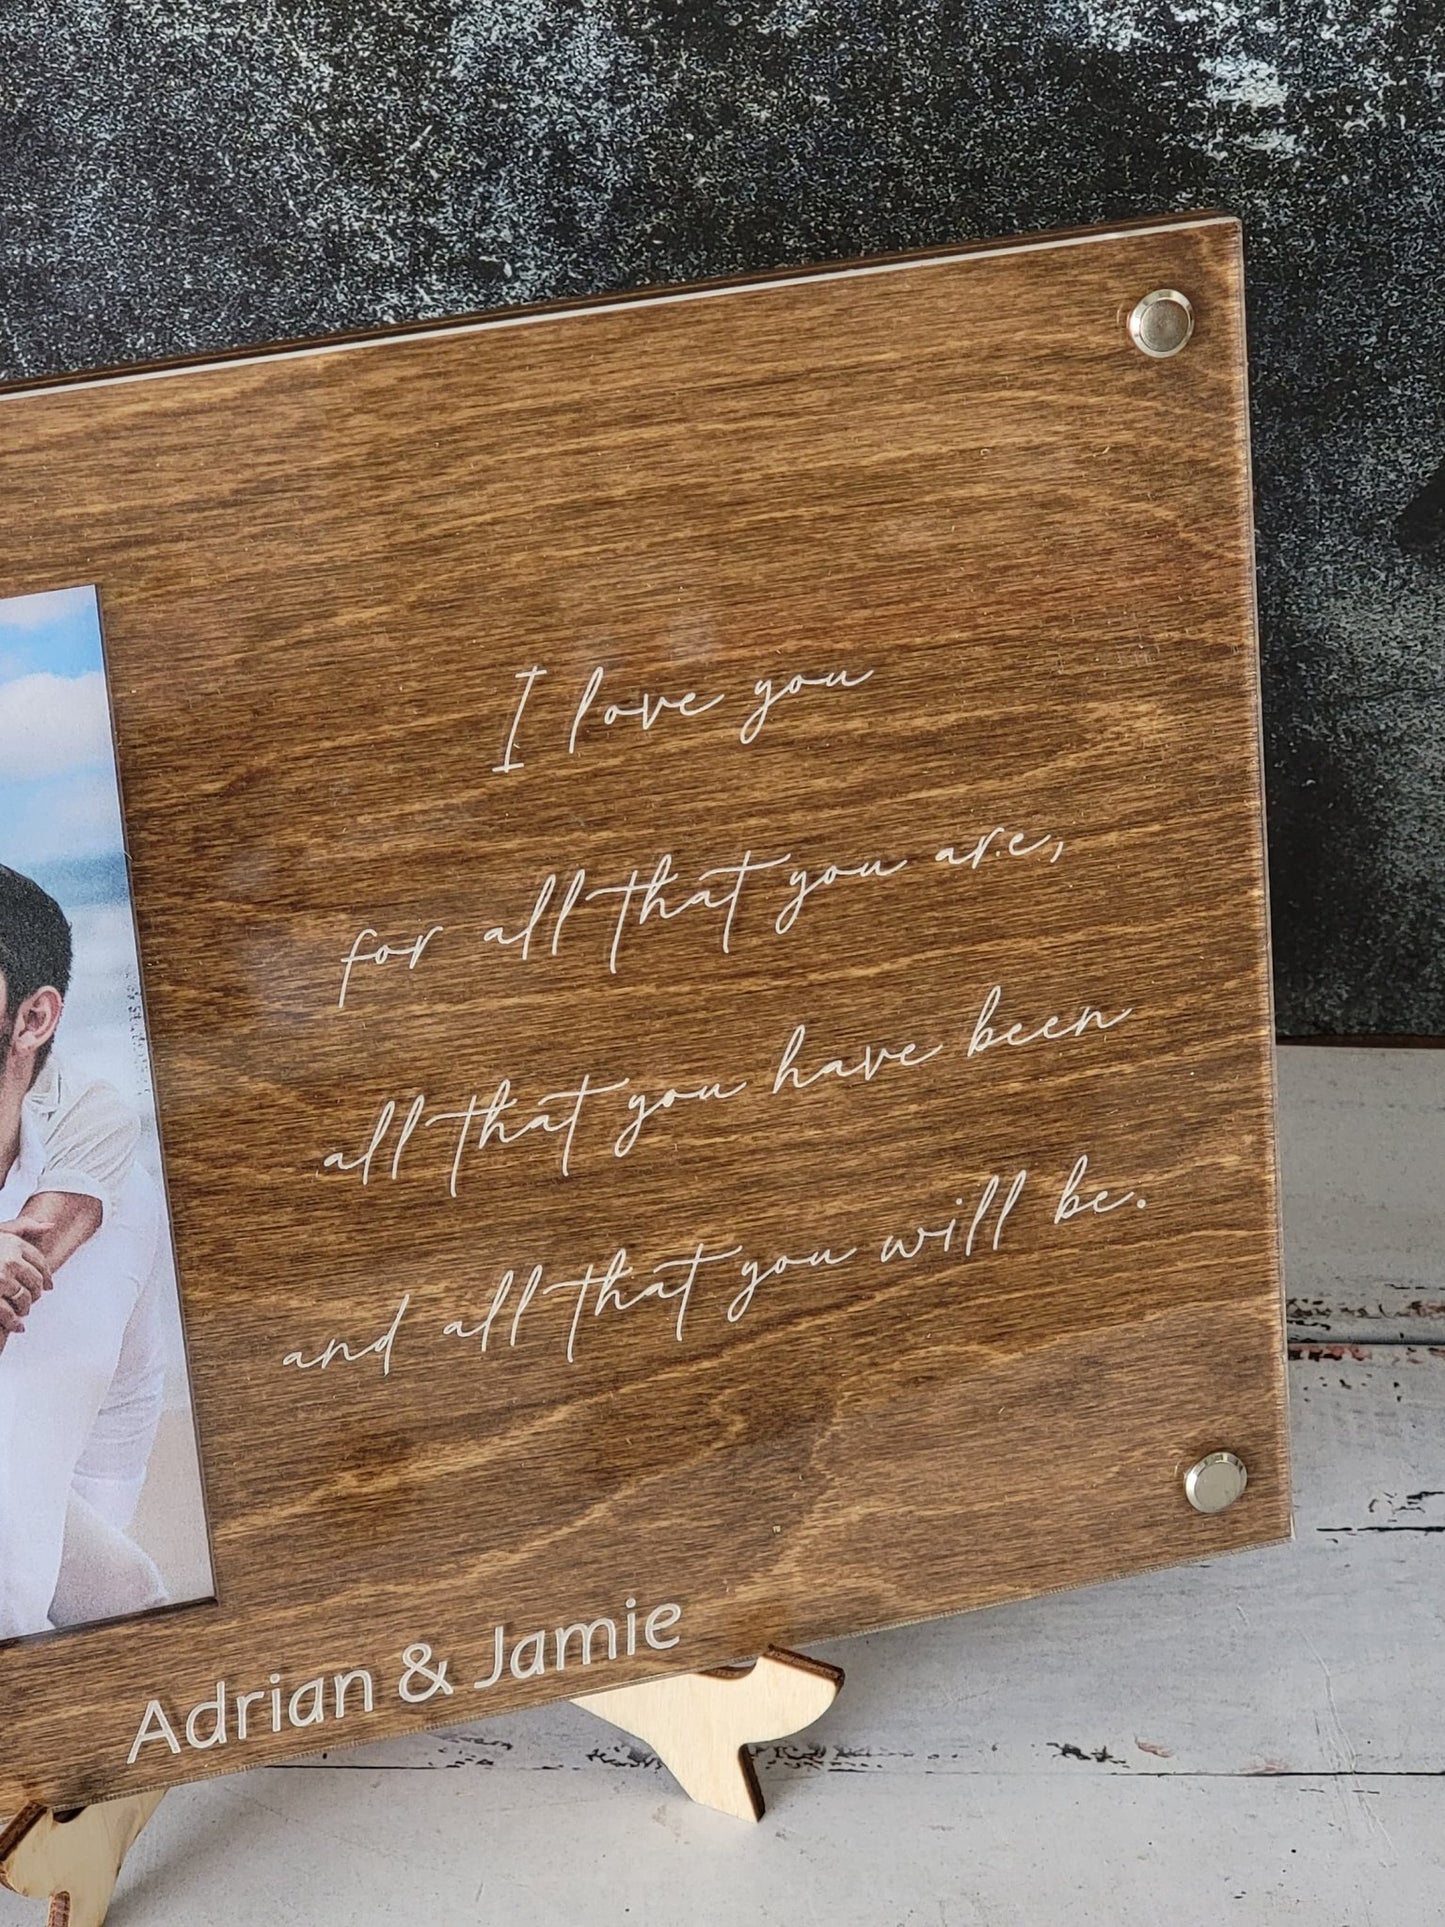 I love you
for all that you are,
all that you have been
and all that you will be.
Adrian & Jamie